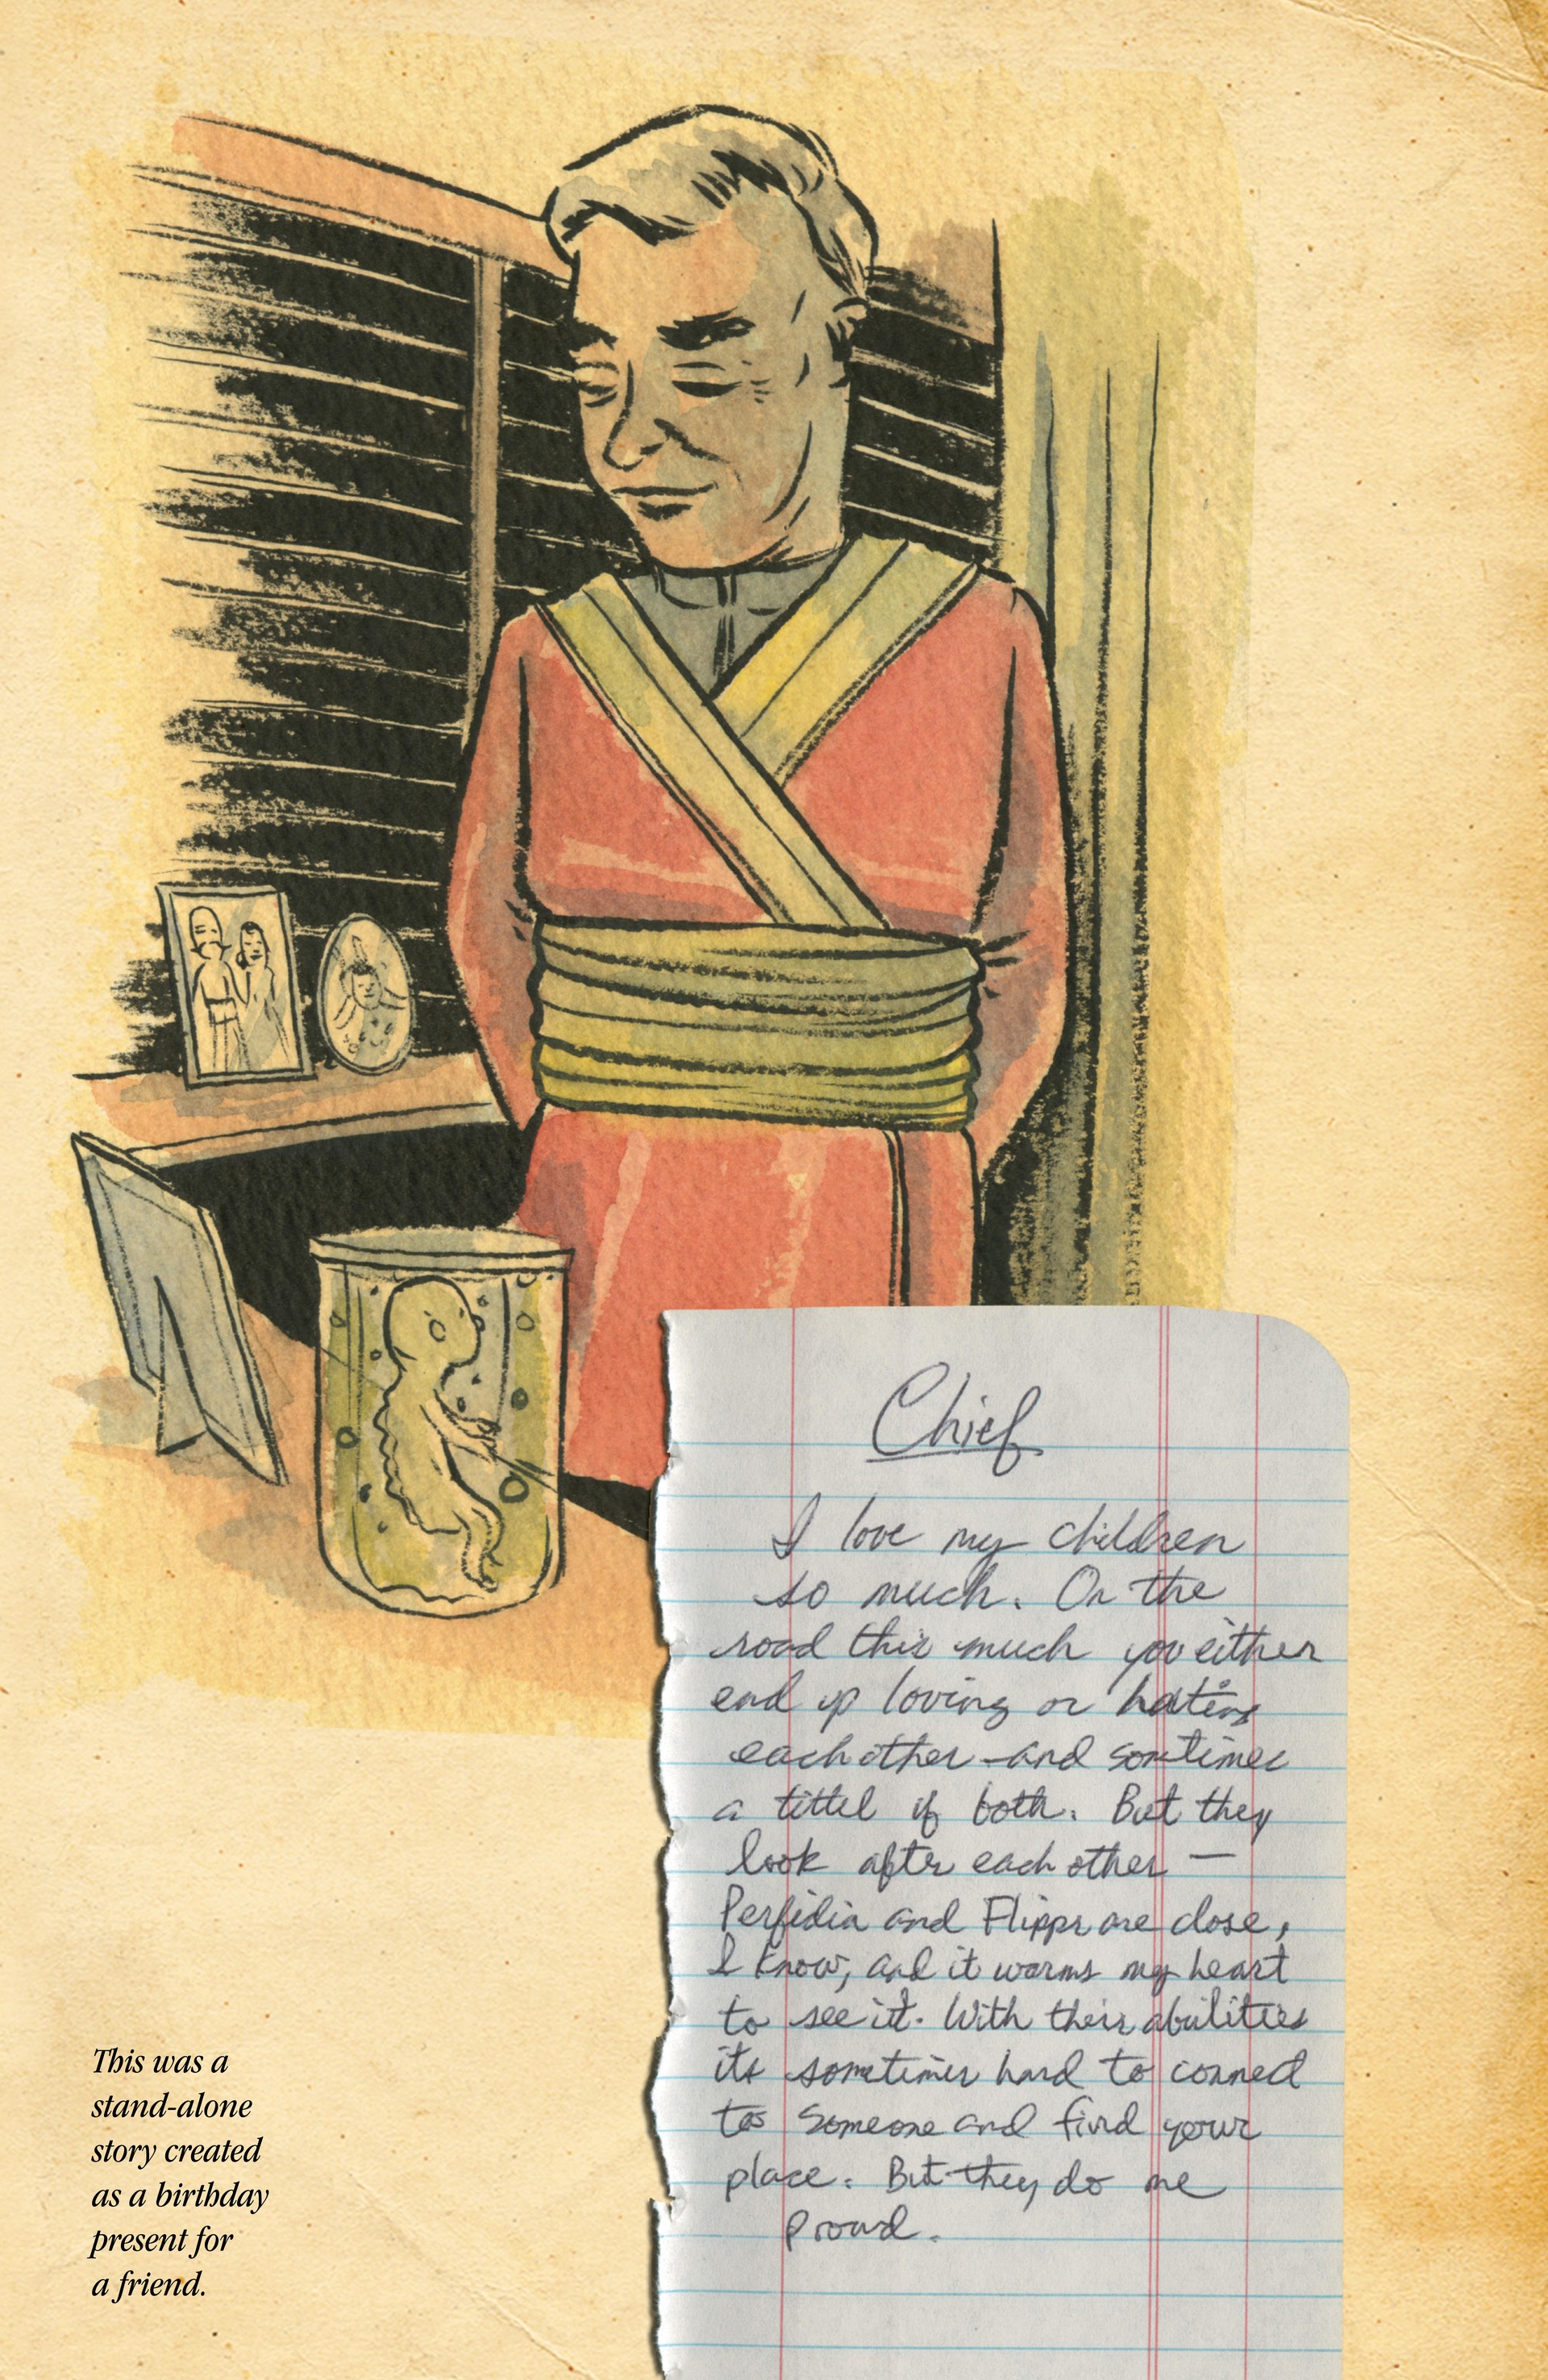 Chief
I love my children
so much. On the
road this much you either
end up loving or hating
each other - and somtimes
a littel of both. But they
look after each other —
Perfidia and Flipps are close,
I know, and it warms my heart
to see it. With their abilities
its sometimes hard to connect
to someone and find your
place. But they do me
proud.
This was a
stand-alone
story created
as a birthday
present for
a friend.